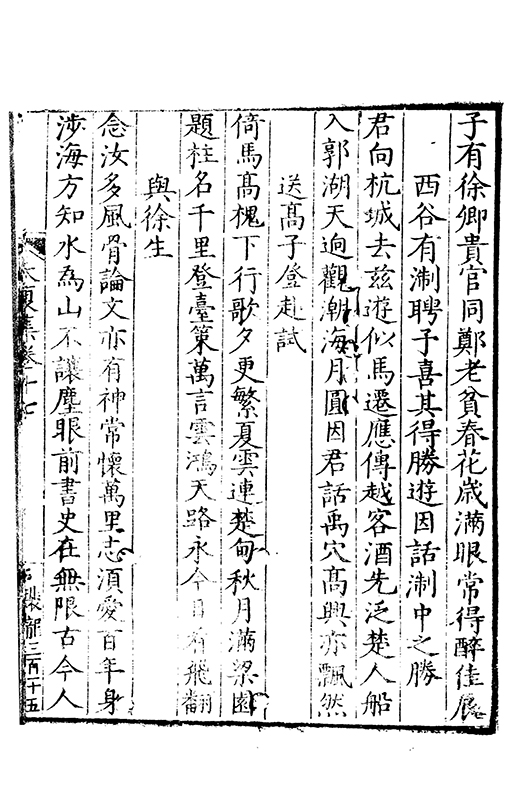 子有徐卿貴官同鄭老貧春花歲滿眼常得醉佳辰
西谷有淛聘子喜其得勝遊因話淛中之勝
君向杭城去茲遊似馬遷應傳越客酒先泛楚人船
入郭湖天逈觀潮海月圓因君話禹穴髙興亦飄然
送髙子登赴試
倚馬髙槐下行歌夕更繁夏雲連楚甸秋月滿梁園
題柱名千里登臺策萬言雲鴻天路永今日看飛翻
與徐生
念汝多風骨論文亦有神常懷萬里志須愛百年身
涉海方知水為山不讓塵眼前書史在無限古今人
集卷十七
三百十五